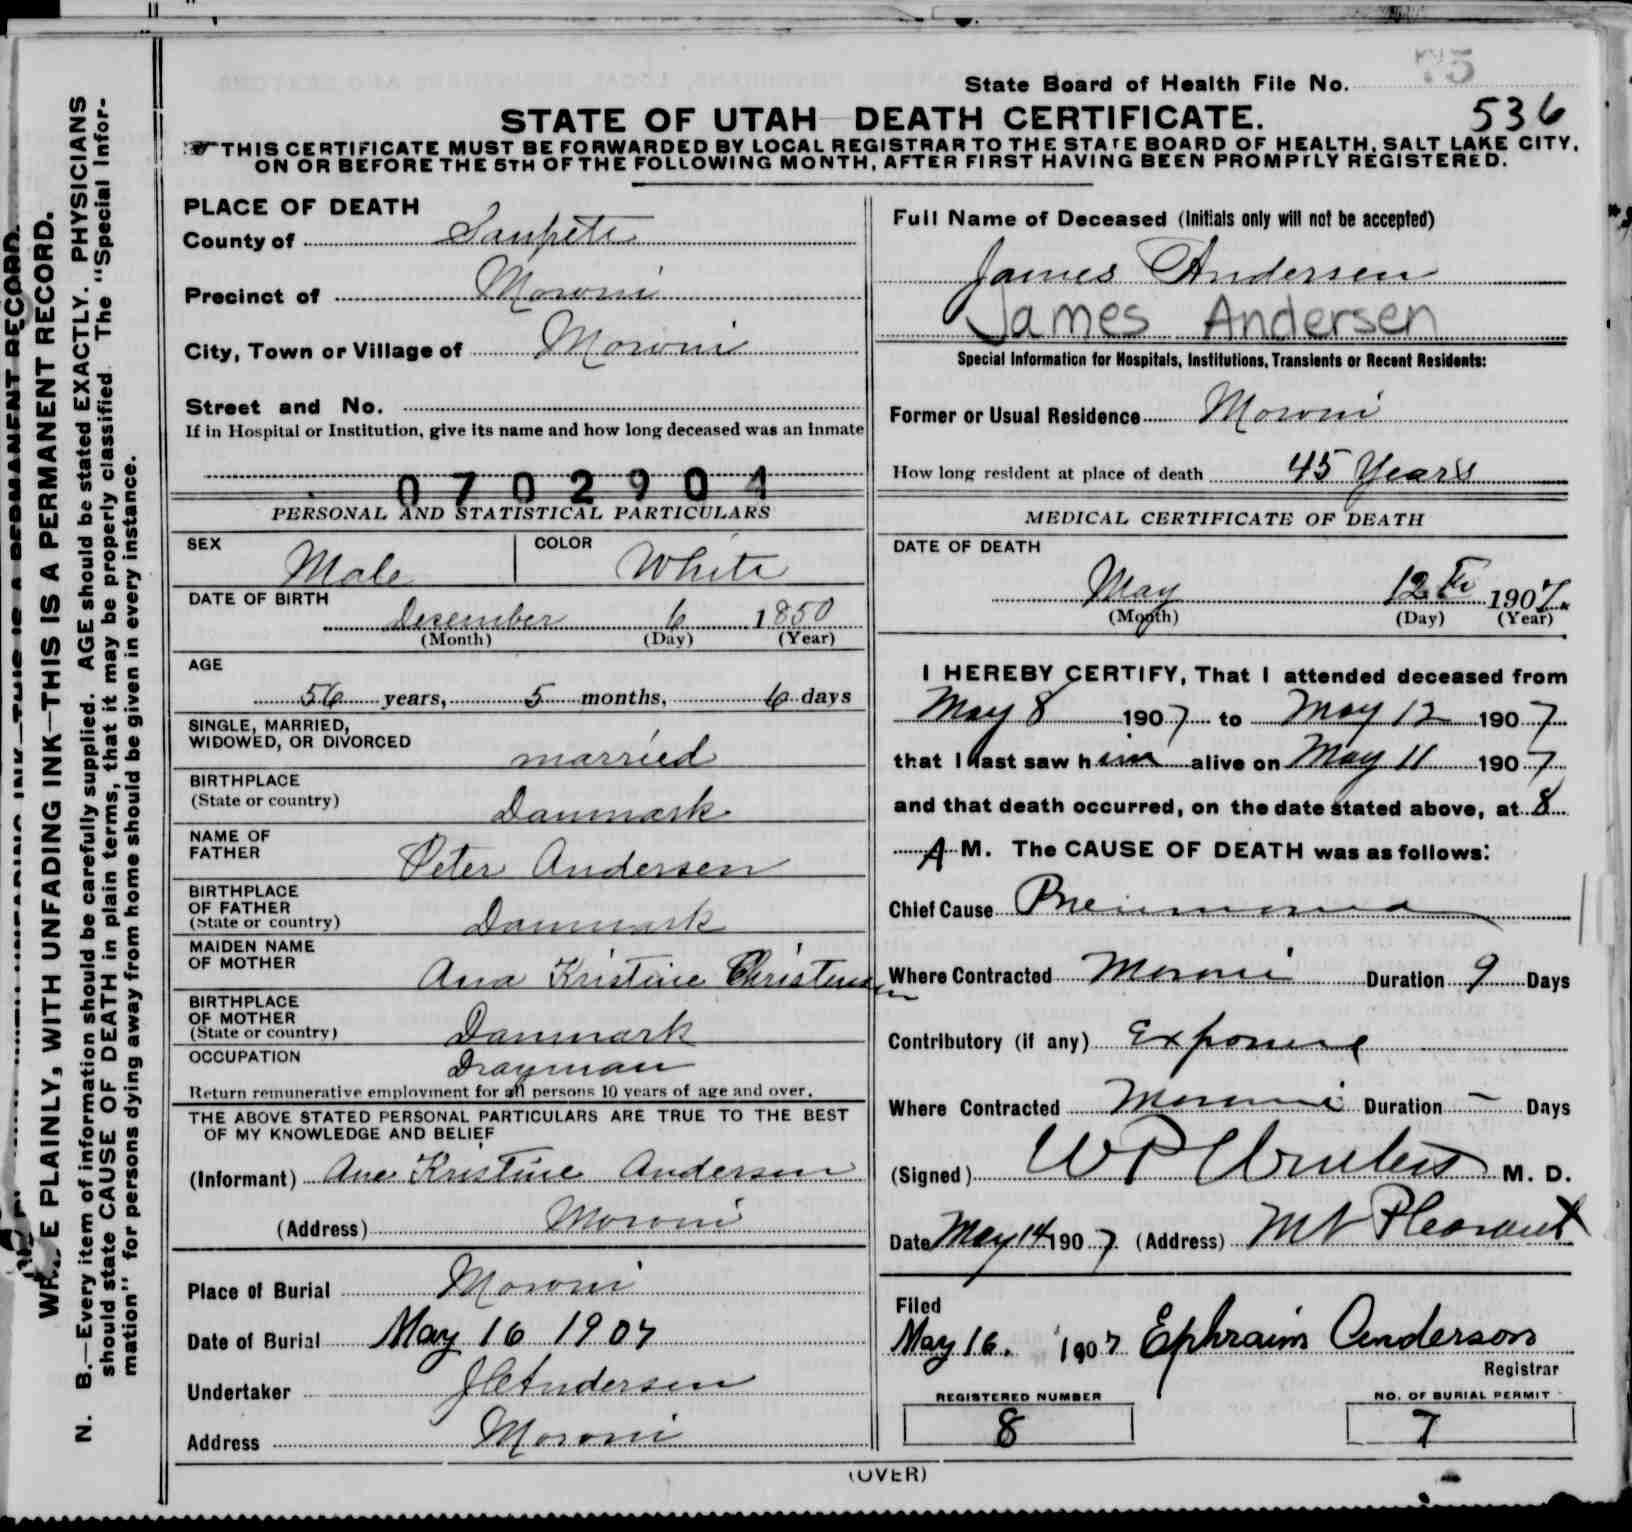 State Board of Health File No. 75
536
STATE OF UTAH DEATH CERTIFICATE.
THIS CERTIFICATE MUST BE FORWARDED BY LOCAL REGISTRAR TO THE STATE BOARD OF HEALTH, SALT LAKE CITY,
ON OR BEFORE THE 5TH OF THE FOLLOWING MONTH, AFTER FIRST HAVING BEEN PROMPTLY REGISTERED.
WRITE PLAINLY, WITH UNFADING INK—THIS IS A PERMANENT RECORD.
N. B.—Every item of information should be carefully supplied. AGE should be stated EXACTLY. PHYSICIANS
should state CAUSE OF DEATH in plain terms, that it may be properly classified. The "Special Infor-
mation" for persons dying away from home should be given in every instance.
PLACE OF DEATH
County of Sanpete
Precinct of Moroni
City, Town or Village of Moroni
Street and No.
If in Hospital or Institution, give its name and how long deceased was an inmate
0702904
PERSONAL AND STATISTICAL PARTICULARS
SEX Male COLOR White
DATE OF BIRTH
Desember 6 1850
(Month) (Day) (Year)
AGE
56 years, 5 months, 6 days
SINGLE, MARRIED,
WIDOWED, OR DIVORCED married
BIRTHPLACE
(State or country) Danmark
NAME OF
FATHER Peter Andersen
BIRTHPLACE
OF FATHER
(State or country) Danmark
MAIDEN NAME
OF MOTHER Ana Kristine Christensen
BIRTHPLACE
OF MOTHER
(State or country) Danmark
OCCUPATION Drayman
Return remunerative employment for all persons 10 years of age and over.
THE ABOVE STATED PERSONAL PARTICULARS ARE TRUE TO THE BEST
OF MY KNOWLEDGE AND BELIEF
(Informant) Ane Kristine Andersen
(Address) Moroni
Place of Burial Moroni
Date of Burial May 16 1907
Undertaker J C Andersen
Address Moroni
Full Name of Deceased (Initials only will not be accepted)
James Andersen
James Andersen
Special Information for Hospitals, Institutions, Transients or Recent Residents:
Former or Usual Residence Moroni
How long resident at place of death 45 Years
MEDICAL CERTIFICATE OF DEATH
DATE OF DEATH
May 12th 1907.
(Month) (Day) (Year)
I HEREBY CERTIFY, That I attended deceased from
May 8 1907 to May 12 1907
that I last saw him alive on May 11 1907
and that death occurred, on the date stated above, at 8
A M. The CAUSE OF DEATH was as follows:
Chief Cause Pneumonia
Where Contracted Moroni Duration 9 Days
Contributory (if any) Exposure
Where Contracted Moroni Duration – Days
(Signed) W P M. D.
Date May 14 1907 (Address) Mt Pleasant
Filed
May 16. 1907 Ephraim Anderson
Registrar
REGISTERED NUMBER
8
NO. OF BURIAL PERMIT
7
(OVER)